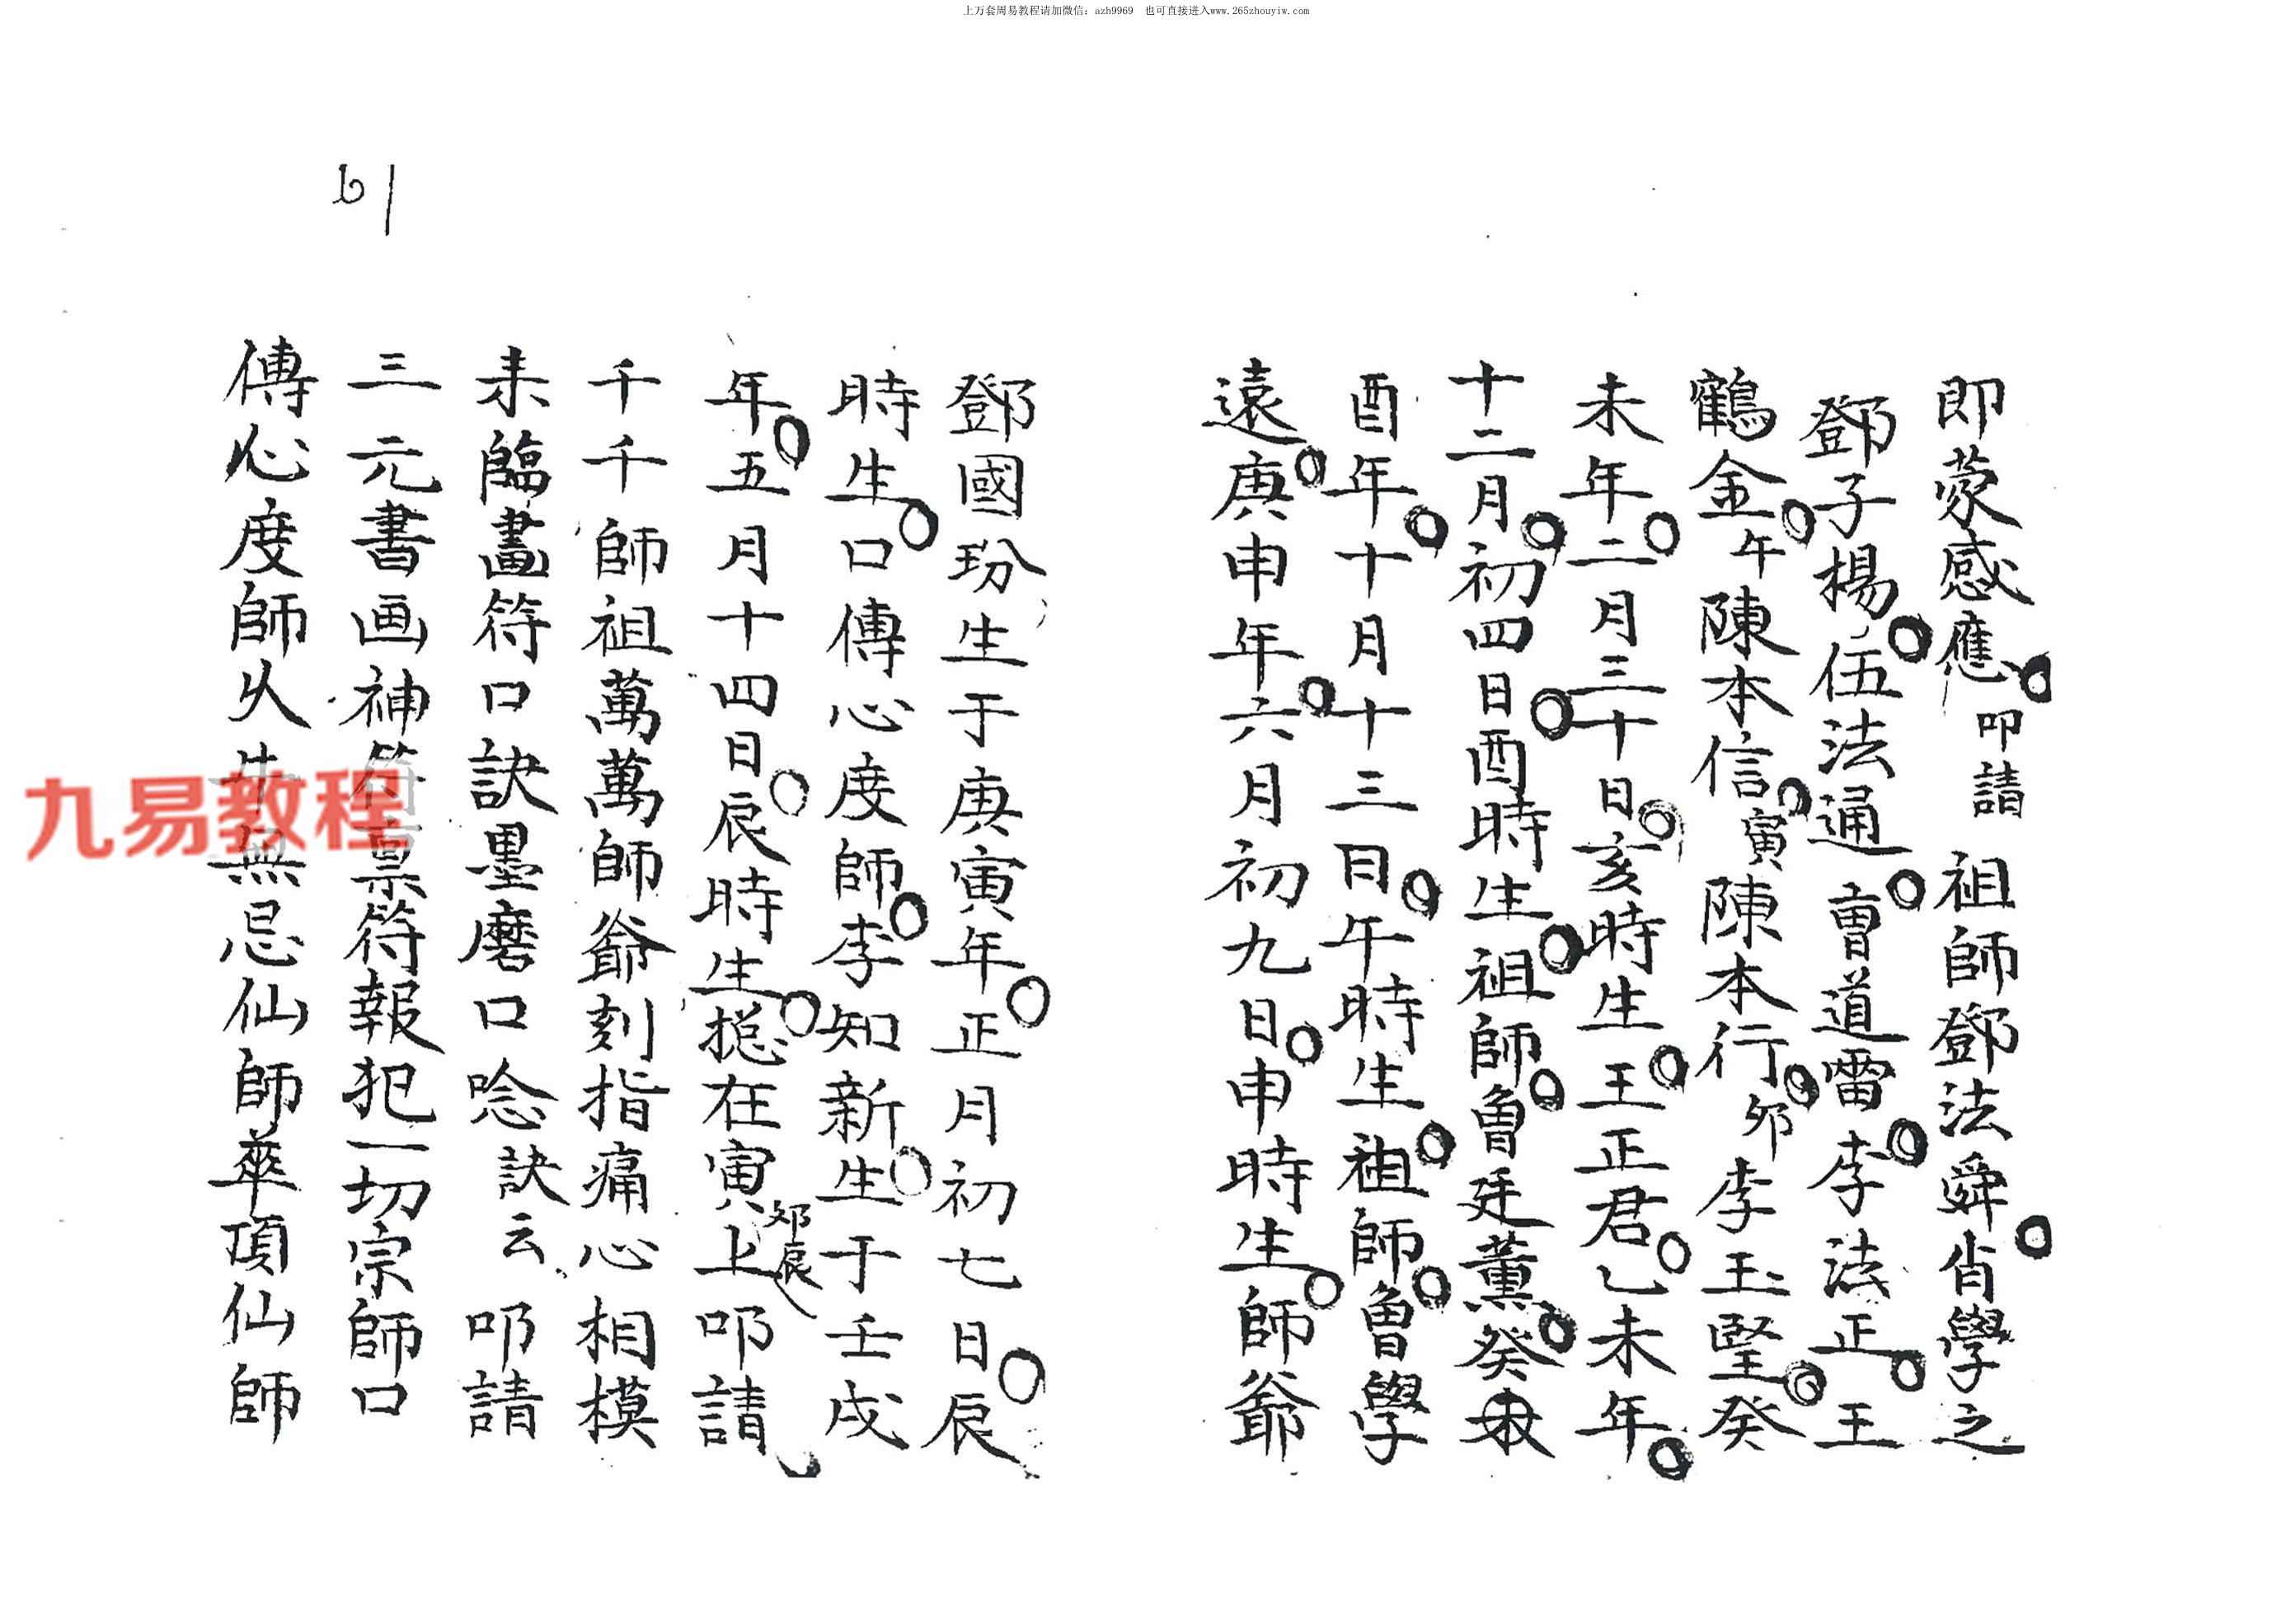 上万套周易教程请加微信：azh9969 也可直接进入www.265zhouyiw.com
61
即蒙感應叩請 祖師鄧法舜肖學之
鄧子楊伍法通曹道雷李法正王
鶴金午陳本信寅陳本行卯李玉堅癸
未年二月三十日亥時生王正君乙未年
十二月初四日酉時生祖師魯廷薰癸
酉年十月十三日午時生祖師魯學
遠庚申年六月初九日申時生師爺
鄧國玢生于庚寅年正月初七日辰
時生口傳心度師李知新生于壬戌
年五月十四日辰時生摠在寅上叩請
卯辰
千千師祖萬萬師爺刻指痛心相模
耒臨畫符口訣墨磨口唸訣云叩請
三元書画神符 符報犯一切宗師口
傳心度師 無忌仙師華頂仙師
九易教程